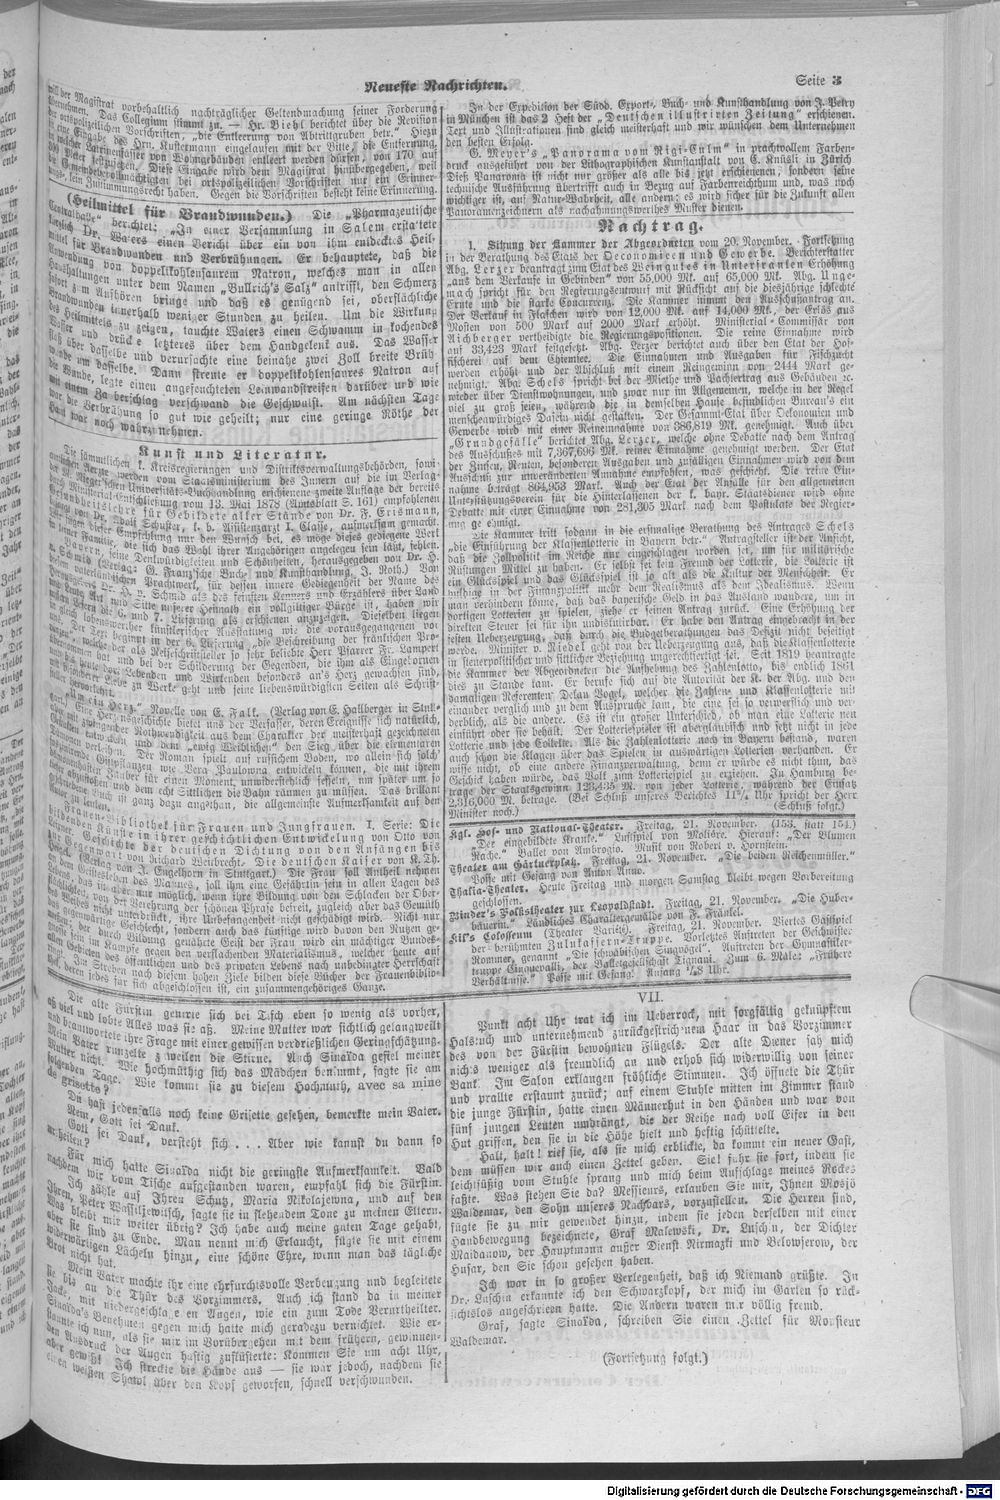 Neueste Nachrichten.
Seite 3
will der Magistrat vorbehaltlich nachträglicher Geltendmachung seiner Forderung
übernehmen. Das Collegium stimmt zu. — Hr. Biehl berichtet über die Revision
der ortspolizeilichen Vorschriften, „die Entleerung von Abtrittgruben betr." Hiezu
ist eine Eingabe des Hrn. Kustermann eingelaufen mit der Bitte, die Entfernung,
in welcher Latrinenfässer von Wohngebäuden entleert werden dürfen, von 170 auf
Diese Eingabe wird dem Magistrat hinübergegeben, weil
die Gemeindebevollmächtigten bei ortspolizeilichen Vorschriften nur ein Erinner-
ungs-, kein Zustimmungsrecht haben. Gegen die Vorschriften besteht keine Erinnerung.
(Heilmittel für Brandwunden.) Die „Pharmazeutische
Centralhalle" berichtet: „In einer Versammlung in Salem erstattete
kürzlich Dr. Waters einen Bericht über ein von ihm entdecktes Heil-
mittel für Brandwunden und Verbrühungen. Er behauptete, daß die
Anwendung von doppelkohlensaurem Natron, welches man in allen
Haushaltungen unter dem Namen „Bullrich's Salz" antrifft, den Schmerz
sofort zum Aufhören bringe und daß es genügend sei, oberflächliche
Brandwunden innerhalb weniger Stunden zu heilen. Um die Wirkung
des Heilmittels zu zeigen, tauchte Waters einen Schwamm in kochendes
Wasser und drückte letzteres über dem Handgelenk aus. Das Wasser
floß über dasselbe und verursachte eine beinahe zwei Zoll breite Brüh-
wunde um dasselbe. Dann streute er doppelkohlensaures Natron auf
die Wunde, legte einen angefeuchteten Leinwandstreifen darüber und wie
mit einem Zauberschlag verschwand die Geschwulst. Am nächsten Tage
war die Verbrühung so gut wie geheilt; nur eine geringe Röthe der
Haut war noch wahrzunehmen.
Kunst und Literatur.
Die sämmtlichen k. Kreisregierungen und Distriktsverwaltungsbehörden, sowie
amtlichen Aerzte werden vom Staatsministerium des Innern auf die im Verlag
der M. Rieger'schen Universitäts-Buchhandlung erschienene zweite Auflage der bereits
durch Ministerial-Entschließung vom 13. Mai 1878 (Amtsblatt S. 161) empfohlenen
„Gesundheitslehre für Gebildete aller Stände von Dr. F. Erismann,
besorgt von Dr. Adolf Schuster, k. b. Assistenzarzt I. Classe, aufmerksam gemacht.
Wir fügen dieser Empfehlung nur den Wunsch bei, es möge dieses gediegene Werk
in keiner Familie, die sich das Wohl ihrer Angehörigen angelegen sein läßt, fehlen.
Bayern, seine Denkwürdigkeiten und Schönheiten, herausgegeben von Dr. H.
v. Schmid (Verlag: G. Franz'sche Buch- und Kunsthandlung, J. Roth.) Von
diesem vaterländischen Prachtwerk, für dessen innere Gediegenheit der Name des
Herausgebers Dr. H. v. Schmid als des feinsten Kenners und Erzählers über Land
und Leute, Art und Sitte unserer Heimath ein vollgiltiger Bürge ist, haben wir
nun die 6. und 7. Lieferung als erschienen anzuzeigen. Dieselben liegen
in gleich lobenswerther künstlerischer Ausstattung wie die vorausgegangenen vor
uns. Der Text beginnt in der 6. Lieferung „die Beschreibung der fränkischen Pro-
vinzen", welche der als Reiseschriftsteller so sehr beliebte Herr Pfarrer Fr. Lampert
übernommen hat und bei der Schilderung der Gegenden, die ihm als Eingebornen
und stets heute dort Lebenden und Wirkenden besonders an's Herz gewachsen sind,
mit besonderer Liebe zu Werke geht und seine liebenswürdigsten Seiten als Schrift-
steller hervorkehrt.
„Um ein Herz." Novelle von E. Falk. (Verlag von E. Hallberger in Stutt-
gart.) Eine Herzensgeschichte bietet uns der Verfasser, deren Ereignisse sich natürlich,
aber mit zwingender Nothwendigkeit aus dem Charakter der meisterhaft gezeichneten
Figuren entwickeln und dem „ewig Weiblichen" den Sieg über die elementaren
Dämonen verleihen. Der Roman spielt auf russischem Boden, wo allein sich solch'
dämonische Giftpflanzen wie Vera Paulowna entwickeln können, die mit ihrem
dämonenhaften Zauber für einen Moment unwiderstehlich fesseln, um später um so
tiefer abzustoßen und dem echt Sittlichen die Bahn räumen zu müssen. Das brillant
geschriebene Buch ist ganz dazu angethan, die allgemeinste Aufmerksamkeit auf den
Autor zu lenken.
Frauen-Bibliothek für Frauen und Jungfrauen. I. Serie: Die
bildenden Künste in ihrer geschichtlichen Entwickelung von Otto von
Leixner. Geschichte der deutschen Dichtung von den Anfängen bis
zur Gegenwart von Richard Weitbrecht. Die deutschen Kaiser von K. Th.
Heigel. (Verlag von J. Engelhorn in Stuttgart.) Die Frau soll Antheil nehmen
am Geistesleben des Mannes, soll ihm eine Gefährtin sein in allen Lagen des
Lebens, das ist aber nur möglich, wenn ihre Bildung von den Schlacken der Ober-
flächlichkeit, von der Verehrung der schönen Phrase befreit, zugleich aber das Gemüth
des Weibes nicht unterdrückt, ihre Unbefangenheit nicht geschädigt wird. Nicht nur
das gegenwärtige Geschlecht, sondern auch das künftige wird davon den Nutzen ge-
nießen, der durch Bildung genährte Geist der Frau wird ein mächtiger Bundes-
genosse sein im Kampfe gegen den verflachenden Materialismus, welcher heute auf
allen Gebieten des öffentlichen und des privaten Lebens nach unbedingter Herrschaft
ringt. Im Streben nach diesem hohen Ziele bilden diese Bände der Frauenbiblio-
thek, deren jedes für sich abgeschlossen ist, ein zusammengehöriges Ganze.
In der Expedition der Südd. Export-, Buch- und Kunsthandlung von J. Petry
in München ist das 2 Heft der „Deutschen illustrirten Zeitung" erschienen.
Text und Illustrationen sind gleich meisterhaft und wir wünschen dem Unternehmen
den besten Erfolg.
G. Meyer's „Panorama vom Rigi-Culm" in prachtvollem Farben-
druck ausgeführt von der Lithographischen Kunstanstalt von C. Knüsli in Zürich
Dieß Panorama ist nicht nur größer als alle bis jetzt erschienenen, sondern seine
technische Ausführung übertrifft auch in Bezug auf Farbenreichthum und, was noch
wichtiger ist, auf Natur-Wahrheit, alle andern; es wird sicher für die Zukunft allen
Panoramenzeichnern als nachahmungswerthes Muster dienen.
Nachtrag.
1. Sitzung der Kammer der Abgeordneten vom 20. November. Fortsetzung
in der Berathung des Etats der Oeconomieen und Gewerbe. Berichterstatter
Abg. Lerzer beantragt zum Etat des Weingutes in Unterfranken Erhöhung
„aus dem Verkaufe in Gebinden" von 55,000 Mk. auf 65,000 Mk. Abg. Unge-
mach spricht für den Regierungsentwurf mit Rücksicht auf die diesjährige schlechte
Ernte und die starke Concurrenz. Die Kammer nimmt den Ausschußantrag an.
Der Verkauf in Flaschen wird von 12,000 Mk. auf 14,000 Mk., der Erlös aus
Mosten von 500 Mark auf 2000 Mark erhöht. Ministerial-Commissär von
Aichberger vertheidigte die Regierungspositionen. Die reine Einnahme wird
auf 33,423 Mark festgesetzt. Abg. Lerzer berichtet auch über den Etat der Hof-
fischerei auf dem Chiemsee. Die Einnahmen und Ausgaben für Fischzucht
werden erhöht und der Abschluß mit einem Reingewinn von 2444 Mark ge-
nehmigt. Abg. Schels spricht bei der Miethe und Pachtertrag aus Gebäuden ꝛc.
wieder über Dienstwohnungen, und zwar nur im Allgemeinen, welche in der Regel
viel zu groß seien, während die in demselben Hause befindlichen Bureau's ein
menschenwürdiges Dasein nicht gestatten. Der Gesammt-Etat über Oekonomien und
Gewerbe wird mit einer Reineinnahme von 386,819 Mk. genehmigt. Auch über
„Grundgefälle" berichtet Abg. Lerzer, welche ohne Debatte nach dem Antrag
des Ausschußes mit 7,367,696 Mk. reiner Einnahme genehmigt werden. Der Etat
der Zinsen, Renten, besonderen Ausgaben und zufälligen Einnahmen wird von dem
Ausschuß zur unveränderten Annahme empfohlen, was geschieht. Die reine Ein-
nahme beträgt 864,953 Mark. Auch der Etat der Anfälle für den allgemeinen
Unterstützungsverein für die Hinterlassenen der k. bayr. Staatsdiener wird ohne
Debatte mit einer Einnahme von 281,305 Mark nach dem Postulate der Regier-
ung genehmigt.
Die Kammer tritt sodann in die erstmalige Berathung des Antrages Schels
„die Einführung der Klassenlotterie in Bayern betr." Antragsteller ist der Ansicht,
daß die Zollpolitik im Reiche nur eingeschlagen worden sei, um für militärische
Rüstungen Mittel zu haben. Er selbst sei kein Freund der Lotterie, die Lotterie ist
ein Glücksspiel und das Glücksspiel ist so alt als die Kultur der Menschheit. Er
huldige in der Finanzpolitik mehr dem Realismus als dem Idealismus. Wenn
man verhindern könne, daß das bayerische Geld in das Ausland wandere, um in
dortigen Lotterien zu spielen, ziehe er seinen Antrag zurück. Eine Erhöhung der
direkten Steuer sei für ihn undiskutirbar. Er habe den Antrag eingebracht in der
festen Ueberzeugung, daß durch die Budgetberathungen das Defizit nicht beseitigt
werde. Minister v. Riedel geht von der Ueberzeugung aus, daß die Klassenlotterie
in steuerpolitischer und sittlicher Beziehung ungerechtfertigt sei. Seit 1819 beantragte
die Kammer der Abgeordneten die Aufhebung des Zahlenlotto, bis endlich 1861
dies zu Stande kam. Er berufe sich auf die Autorität der K. der Abg. und den
damaligen Referenten Dekan Vogel, welcher die Zahlen- und Klassenlotterie mit
einander verglich und zu dem Ausspruche kam, die eine sei so verwerflich und ver-
derblich, als die andere. Es ist ein großer Unterschied, ob man eine Lotterie neu
einführt oder sie behält. Der Lotteriespieler ist abergläubisch und setzt nicht in jede
Lotterie und jede Collekte. Als die Zahlenlotterie noch in Bayern bestand, waren
auch schon die Klagen über das Spielen in auswärtigen Lotterien vorhanden. Er
wisse nicht, ob eine andere Finanzverwaltung, denn er würde es nicht thun, das
Geschick haben würde, das Volk zum Lotteriespiel zu erziehen. In Hamburg be-
trage der Staatsgewinn 123,435 M. von jeder Lotterie, während der Einsatz
2,316,000 M. betrage. (Bei Schluß unseres Berichtes 11¾ Uhr spricht der Herr
Minister noch.) (Schluß folgt.)
Kgl. Hof- und National-Theater. Freitag, 21. November. (153. statt 154.)
„Der eingebildete Kranke." Lustspiel von Molière. Hierauf: „Der Blumen
Rache." Ballet von Ambrogio. Musik von Robert v. Hornstein.
Theater am Gärtnerplatz. Freitag, 21. November. „Die beiden Reichenmüller."
Posse mit Gesang von Anton Anno.
Thalia-Theater. Heute Freitag und morgen Samstag bleibt wegen Vorbereitung
geschlossen.
Binder's Volkstheater zur Leopoldstadt. Freitag, 21. November. „Die Huber-
bäuerin." Ländliches Charaktergemälde von F. Fränkel.
Kil's Colosseum (Theater Varieté). Freitag, 21. November. Viertes Gastspiel
der berühmten Zulukaffern-Truppe. Vorletztes Auftreten der Geschwister
Rommer, genannt „Die schwäbischen Singvögel". Auftreten der Gymnastiker-
truppe Cinquevalli, der Balletgesellschaft Tignani. Zum 6. Male: „Frühere
Verhältnisse." Posse mit Gesang. Anfang ½8 Uhr.
Die alte Fürstin genirte sich bei Tisch eben so wenig als vorher,
aß viel und lobte Alles was sie aß. Meine Mutter war sichtlich gelangweilt
und beantwortete ihre Frage mit einer gewissen verdrießlichen Geringschätzung.
Mein Vater runzelte zuweilen die Stirne. Auch Sinaïda gefiel meiner
Mutter nicht. Wie hochmüthig sich das Mädchen benimmt, sagte sie am
folgenden Tage. Wie kommt sie zu diesem Hochmuth, avec sa mine
de grisette?
Du hast jedenfalls noch keine Grisette gesehen, bemerkte mein Vater.
Nein, Gott sei Dank.
Gott sei Dank, versteht sich . . . . Aber wie kannst du dann so
urtheilen?
Für mich hatte Sinaïda nicht die geringste Aufmerksamkeit. Bald
nachdem wir vom Tische aufgestanden waren, empfahl sich die Fürstin.
Ich zähle auf Ihren Schutz, Maria Nikolajewna, und auf den
Ihren, Peter Wassiljewitsch, sagte sie in flehendem Tone zu meinen Eltern.
Was bleibt mir weiter übrig? Ich habe auch meine guten Tage gehabt,
aber sie sind zu Ende. Man nennt mich Erlaucht, fügte sie mit einem
widerwärtigen Lächeln hinzu, eine schöne Ehre, wenn man das tägliche
Brot nicht hat.
Mein Vater machte ihr eine ehrfurchtsvolle Verbeugung und begleitete
sie bis an die Thür des Vorzimmers. Auch ich stand da in meiner
Jacke, mit niedergeschlagenen Augen, wie ein zum Tode Verurtheilter.
Sinaïda's Benehmen gegen mich hatte mich geradezu vernichtet. Wie er-
staunte ich nun, als sie mir im Vorübergehen mit dem frühern, gewinnen-
den Ausdruck der Augen hastig zuflüsterte: Kommen Sie um acht Uhr,
aber gewiß! Ich streckte die Hände aus — sie war jedoch, nachdem sie
einen weißen Shawl über den Kopf geworfen, schnell verschwunden.
VII.
Punkt acht Uhr trat ich im Ueberrock, mit sorgfältig geknüpftem
Halstuch und unternehmend zurückgestrichenem Haar in das Vorzimmer
des von der Fürstin bewohnten Flügels. Der alte Diener sah mich
nichts weniger als freundlich an und erhob sich widerwillig von seiner
Bank. Im Salon erklangen fröhliche Stimmen. Ich öffnete die Thür
und prallte erstaunt zurück; auf einem Stuhle mitten im Zimmer stand
die junge Fürstin, hatte einen Männerhut in den Händen und war von
fünf jungen Leuten umdrängt, die der Reihe nach voll Eifer in den
Hut griffen, den sie in die Höhe hielt und heftig schüttelte.
Halt, halt! rief sie, als sie mich erblickte, da kommt ein neuer Gast,
dem müssen wir auch einen Zettel geben. Sie! fuhr sie fort, indem sie
leichtfüßig vom Stuhle sprang und mich beim Aufschlage meines Rockes
faßte. Was stehen Sie da? Messieurs, erlauben Sie mir, Ihnen Mosjö
Waldemar, den Sohn unseres Nachbars, vorzustellen. Die Herren sind,
fügte sie zu mir gewendet hinzu, indem sie jeden derselben mit einer
Handbewegung bezeichnete, Graf Malewski, Dr. Luschin, der Dichter
Maidanow, der Hauptmann außer Dienst Nirmazki und Belowserow, der
Husar, den Sie schon gesehen haben.
Ich war in so großer Verlegenheit, daß ich Niemand grüßte. In
Dr. Luschin erkannte ich den Schwarzkopf, der mich im Garten so rück-
sichtslos angeschrieen hatte. Die Andern waren mir völlig fremd.
Graf, sagte Sinaïda, schreiben Sie einen Zettel für Monsieur
Waldemar.
(Fortsetzung folgt.)
Digitalisierung gefördert durch die Deutsche Forschungsgemeinschaft - DFG